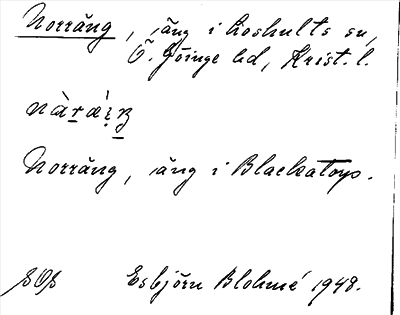 Norräng, äng i Loshults sn,
Ö. Göinge hd, Krist. l.
Norräng, äng i Blackatorp.
Esbjörn Blohmé 1948.